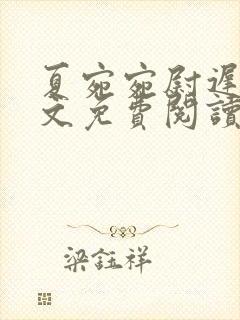 夏宛宛尉遲
文免費閱讀
梁鈺祥